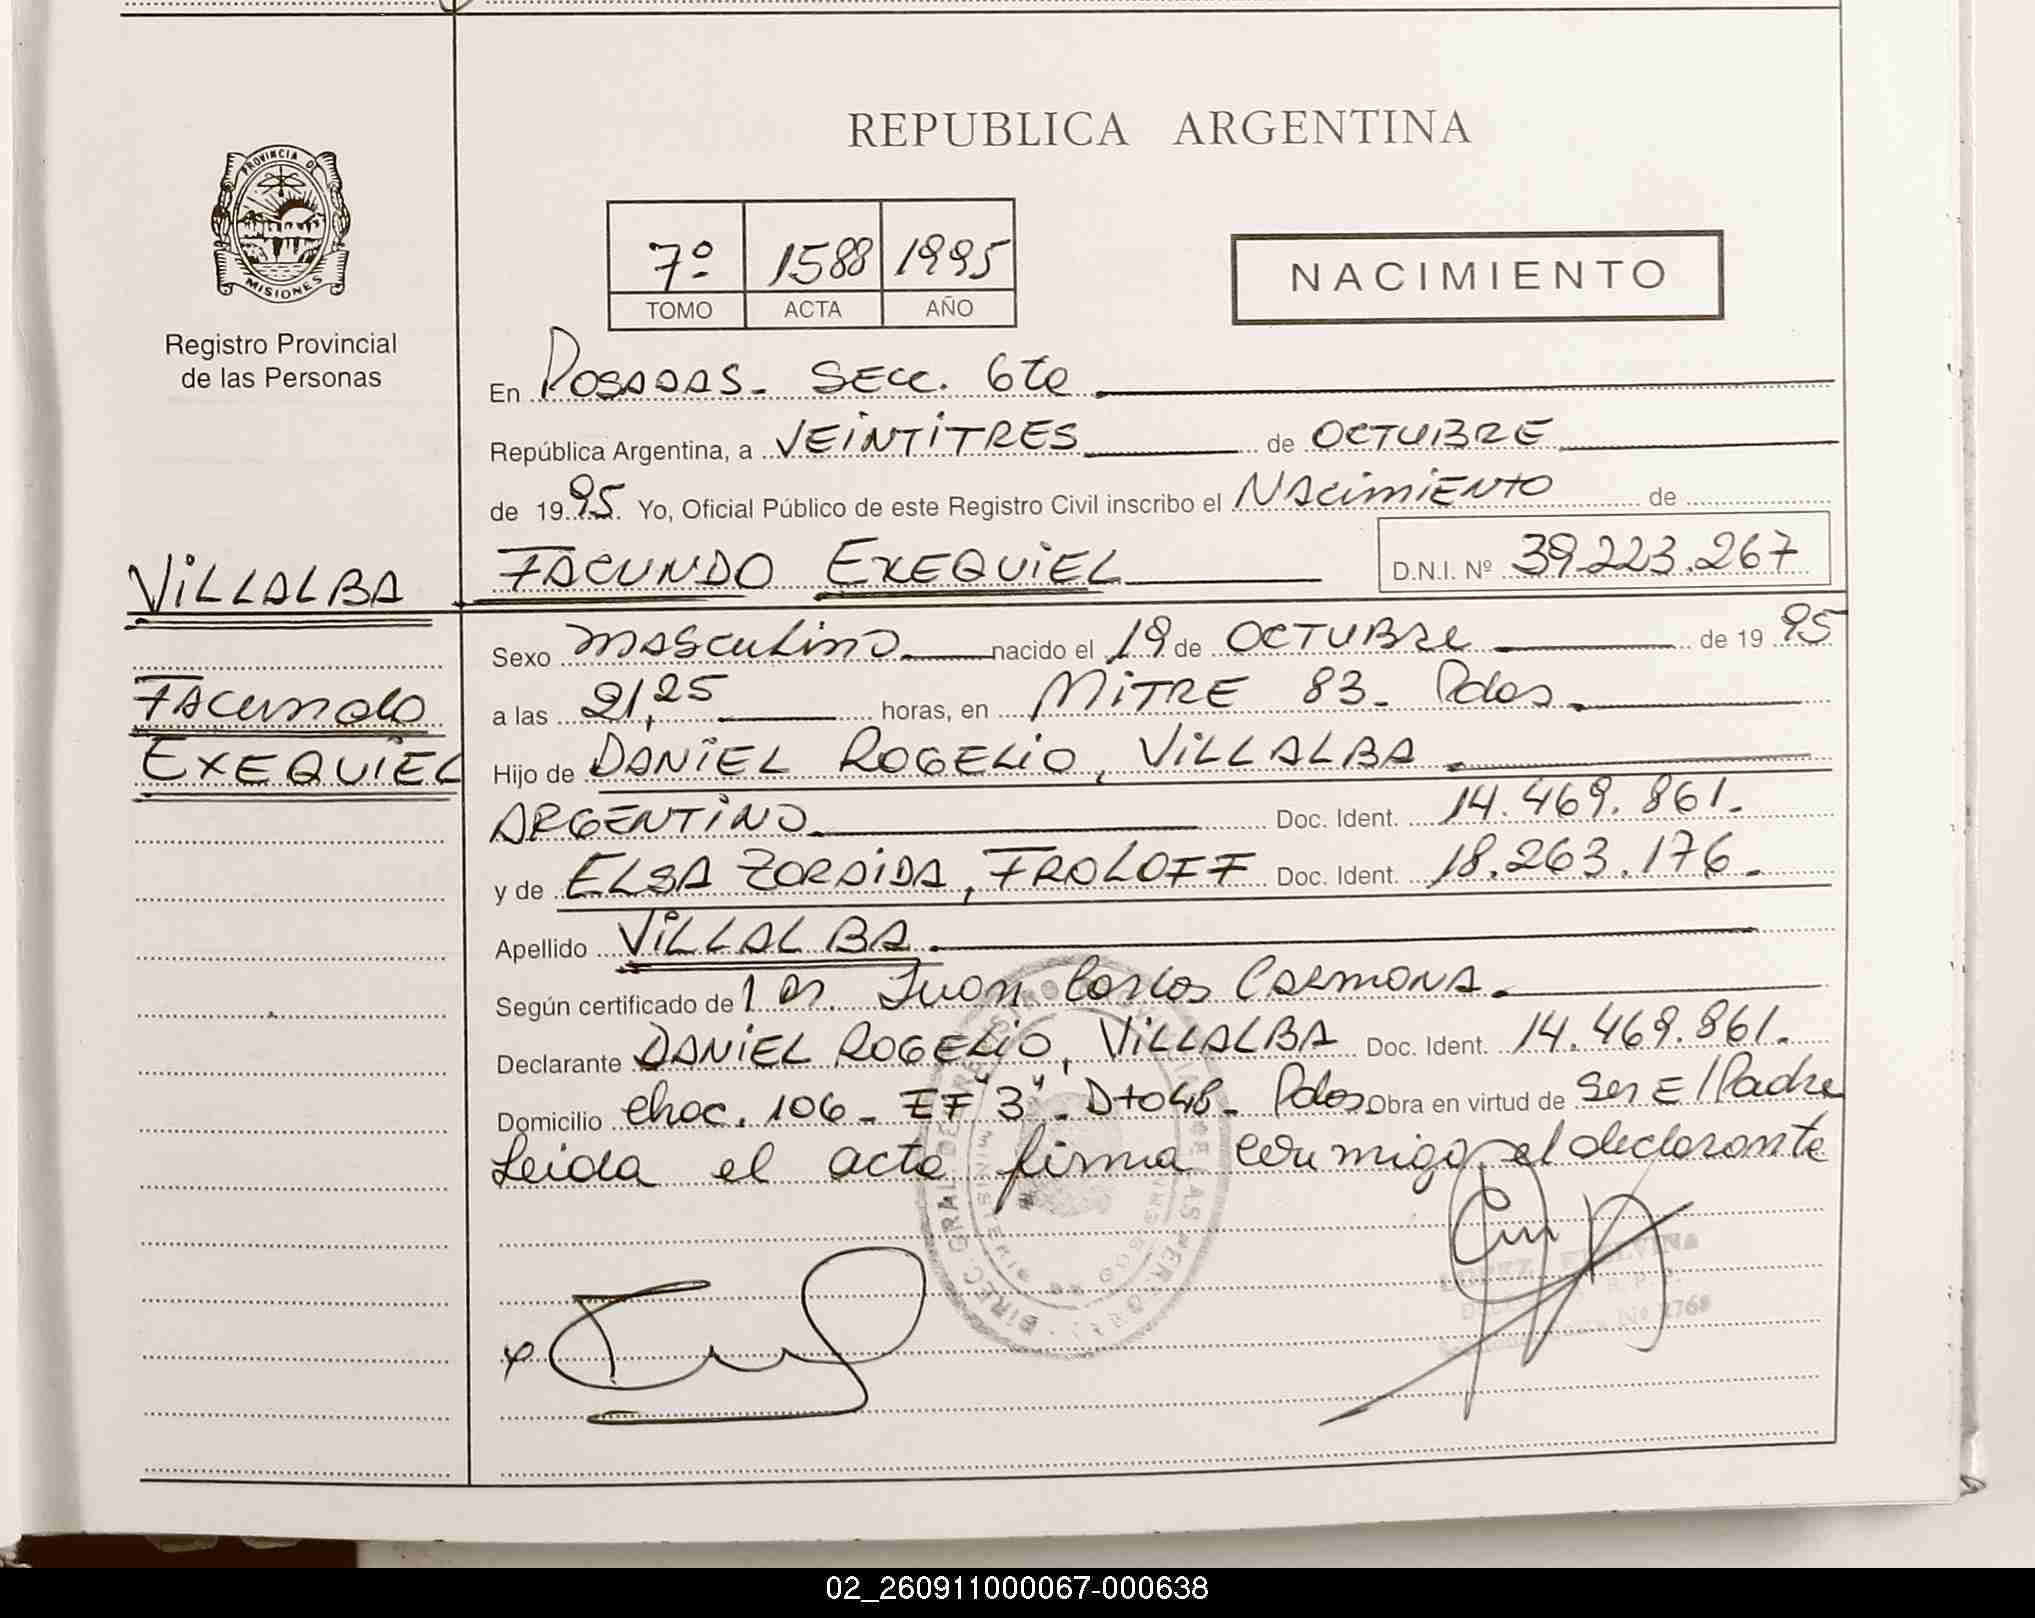 REPUBLICA ARGENTINA
PROVINCIA DE
MISIONES
Registro Provincial
de las Personas
7º 1588 1995
TOMO ACTA AÑO
NACIMIENTO
En Posadas. Secc. 6ta
República Argentina, a VEINTITRES de OCTUBRE
de 1995. Yo, Oficial Público de este Registro Civil inscribo el NACIMIENTO de
VILLALBA
FACUNDO EXEQUIEL D.N.I. Nº 39.223.267
Sexo masculino nacido el 19 de OCTUBRE de 1995
FACUNDO
a las 21,25 horas, en MITRE 83. Pdas.
EXEQUIEL
Hijo de DANIEL ROGELIO, VILLALBA.
ARGENTINO Doc. Ident. 14.469.861.
y de ELSA ZORAIDA, FROLOFF Doc. Ident. 18.263.176.
Apellido VILLALBA.
Según certificado de Juan Carlos CARMONA.
Declarante DANIEL ROGELIO, VILLALBA Doc. Ident. 14.469.861.
Domicilio chac. 106 - EF "3" - Dto 48 - Pdas. Obra en virtud de ser El Padre
Leida el acta firma conmigo el declarante
02_260911000067-000638